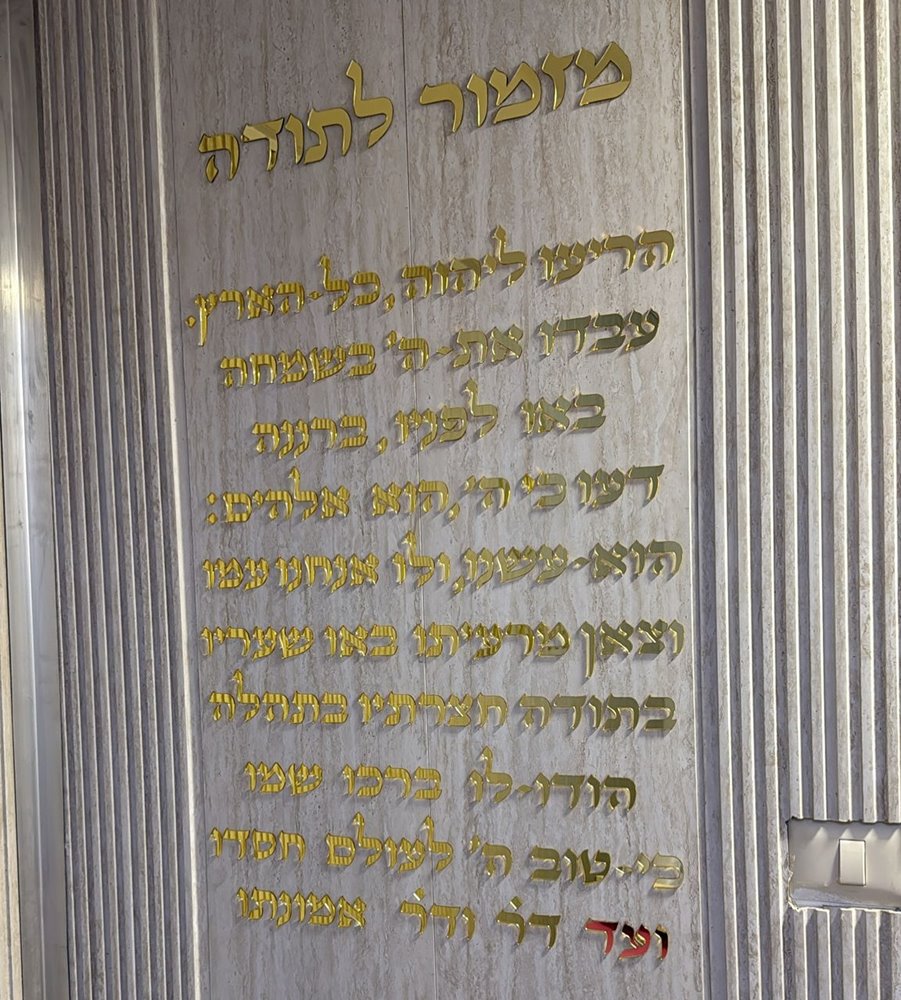 מזמור לתודה
הריעו ליהוה, כל-הארץ.
עבדו את-ה' בשמחה
באו לפניו, ברננה
דעו כי ה', הוא אלהים:
הוא-עשנו, ולו אנחנו עמו
וצאן מרעיתו באו שעריו
בתודה חצרתיו בתהלה
הודו-לו ברכו שמו
כי-טוב ה' לעולם חסדו
ועד דר ודר אמונתו